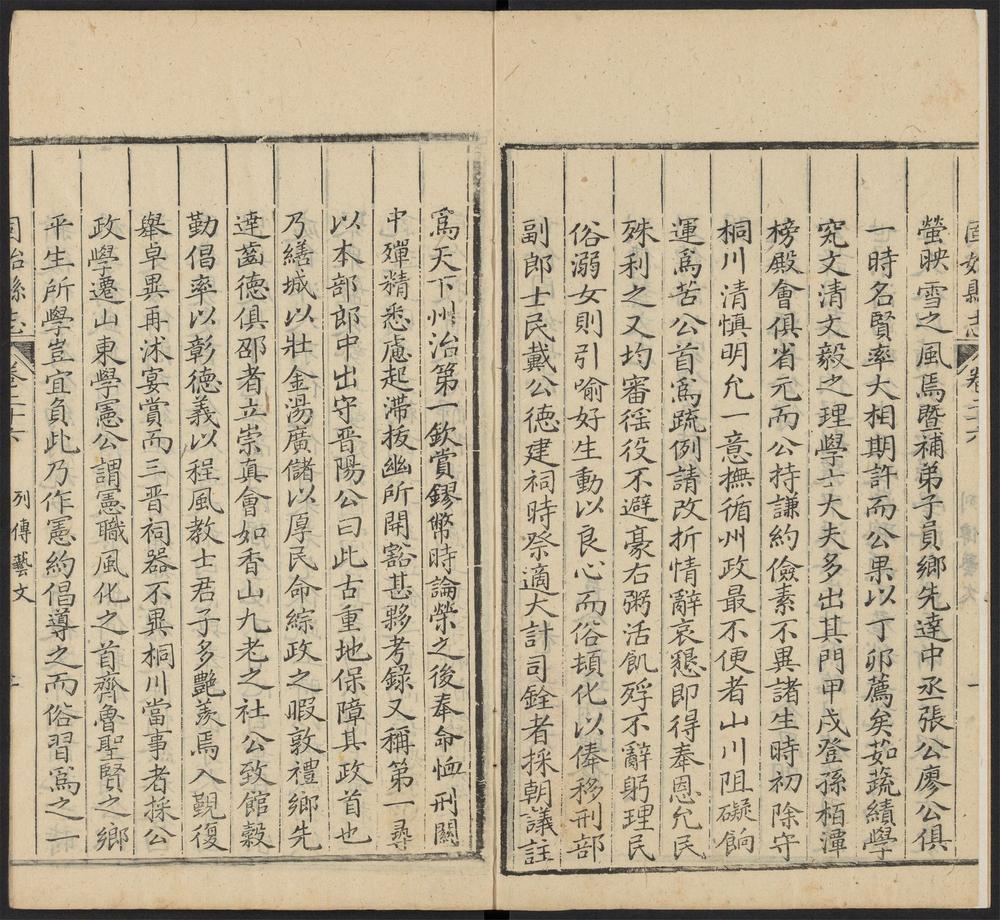 固始縣志 卷二十六
螢映雪之風焉暨補弟子員鄉先達中丞張公廖公俱
一時名賢率大相期許而公果以丁卯薦矣茹蔬績學
究文清文毅之理學士大夫多出其門甲戌登孫栢潭
榜殿會俱省元而公持謙約儉素不異諸生時初除守
桐川清慎明允一意撫循州政最不便者山川阻礙餉
運爲苦公首爲疏例請改折情辭哀懇即得奉恩允民
殊利之又均審徭役不避豪右粥活飢殍不辭躬理民
俗溺女則引喻好生動以良心而俗頓化以俸移刑部
副郎士民戴公德建祠時祭適大計司銓者採朝議註
爲天下州治第一欽賞鏐幣時論榮之後奉命恤刑關
中殫精悉慮起滯拔幽所開豁甚夥考錄又稱第一尋
以本部郎中出守晉陽公曰此古重地保障其政首也
乃繕城以壯金湯廣儲以厚民命綜政之暇敦禮鄉先
達齒德俱邵者立崇真會如香山九老之社公致館穀
勤倡率以彰德義以程風教士君子多艷羨焉入覲復
舉卓異再沭宴賞而三晉祠器不異桐川當事者採公
政學遷山東學憲公謂憲職風化之首齊魯聖賢之鄉
平生所學豈宜負此乃作憲約倡導之而俗習爲之一
固始縣志 卷二十六 列傳藝文